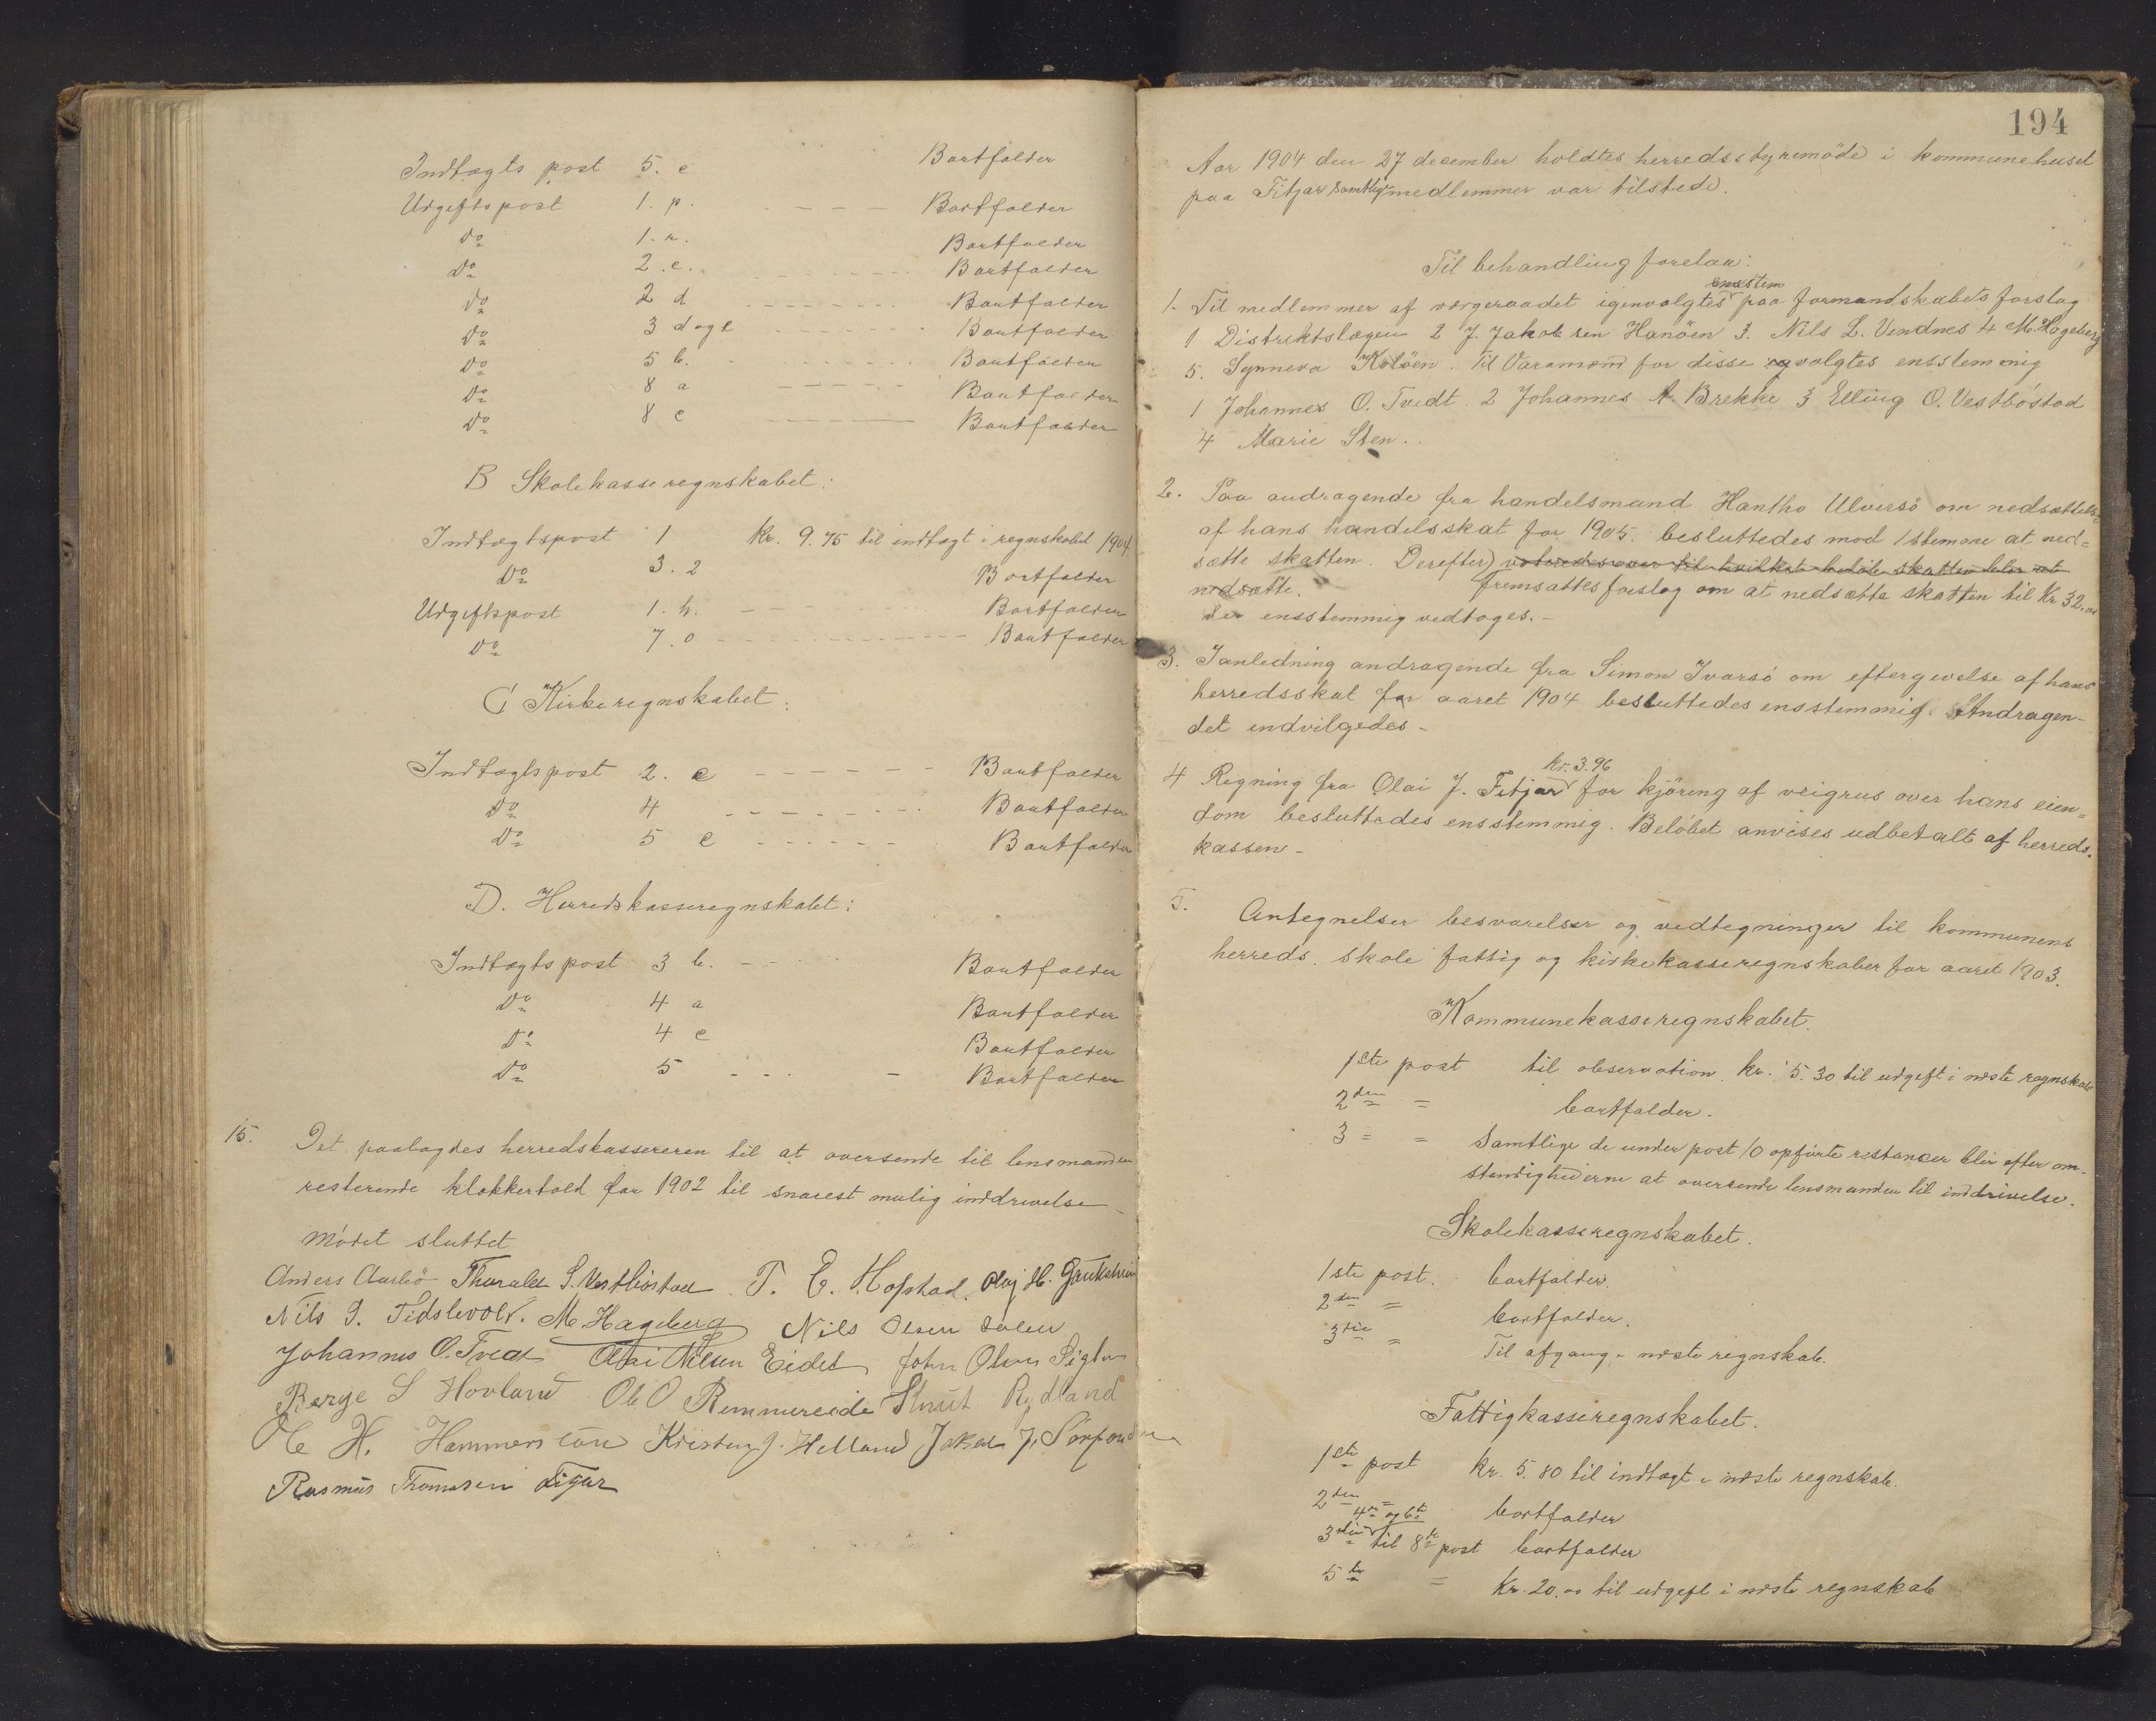 Indtægts post 5. e Bortfalder
Udgiftspost 1. p. - - - Bortfalder
Do 1. r. Bortfalder
Do 2. e. - - - - - - Bortfalder
Do 2 d - - - - - - Bortfalder
Do 3 d og e - - - - - - Bortfalder
Do 5 b. - - - - - - Bortfalder
Do 8 a - - - - - Bortfalder
Do 8 e - - - - - Bortfalder
B Skolekasseregnskabet:
Indtægtspost 1 kr. 9.75 til indtægt i regnskabet 1904
Do 3. 2 Bortfalder
Udgiftspost 1. h. - - - Bortfalder
Do 7. o - - - - - - Bortfalder
C Kirkeregnskabet:
Indtægtspost 2. e - - - - - - Bortfalder
Do 4 - - - - - - Bortfalder
Do 5 e - - - - - - Bortfalder
D. Herredskasseregnskabet:
Indtægtspost 3 b. - - Bortfalder
Do 4 a Bortfalder
Do 4 e Bortfalder
Do 5 - - - - Bortfalder
15. Det paalagdes herredskassereren til at oversende til lensmanden
resterende klokkertold for 1902 til snarest mulig inddrivelse -
Mödet sluttet
Anders Aarbö Thorald S. Vestböstad T. E. Hofstad. Olaj H. Gaukstein
Nils G. Tidslevold. M. Hageberg Nils Olsen
Johannes O. Tvedt Olai Nilsen Eidet John Olsen
Berge S Hovland Ole O Rimmereide Knut Rydland
Ole H. Kristen J. Helland Jakob J. Sörfonden
Rasmus Thomasen Fitjar
194
Aar 1904 den 27 december holdtes herredsstyremöde i kommunehuset
paa Fitjar samtlige medlemmer var tilstede.
Til behandling forelaa:
ensstem
1. Til medlemmer af værgeraadet igenvalgtes paa formandskabets forslag
1 Distriktslægen 2 J. Jakobsen Hanöen 3. Nils L. Vendnes 4 M. Hageberg
5. Synneva Koløen. Til Varamænd for disse og valgtes ensstemmig
1 Johannes O. Tvedt 2 Johannes A. Brekke 3 Elling O. Vestböstad
4 Marie Sten.
2. Paa andragende fra handelsmand Hantho Ulversö om nedsættelse
af hans handelsskat for 1905. besluttedes mod 1 stemme at ned=
sætte skatten. Derefter) voteredes over til hvilket beløb skatten blev at
nedsætte. fremsattes forslag om at nedsætte skatten til Kr 32.00
der ensstemmig vedtoges. -
3. Ianledning andragende fra Simon Ivarsö om eftergivelse af hans
herredsskat for aaret 1904 besluttedes ensstemmig. Andragen-
det indvilgedes -
kr. 3.96
4 Regning fra Olai J. Fitjar for kjöring af veigrus over hans eien=
dom besluttedes ensstemmig. Belöbet anvises udbetalt af herreds.
kassen -
5. Antegnelser besvarelser og vedtegninger til kommunens
herreds. skole fattig og kirkekasseregnskaber for aaret 1903.
Kommunekasseregnskabet.
1ste post til observation. kr. 5.30 til udgift i næste regnskab
2den = bortfalder.
3 = = Samtlige de under post 10 opförte restancer blir efter om-
stendighederne at oversende lensmanden til inddrivelse.
Skolekasseregnskabet.
1ste post. bortfalder.
2den = bortfalder.
3die = Til afgang i næste regnskab.
Fattigkasseregnskabet.
1ste post kr. 5.80 til indtægt i næste regnskab.
2den = bortfalder
4de og 6te
3die til 8de post bortfalder
5te = kr. 20.00 til udgift i næste regnskab